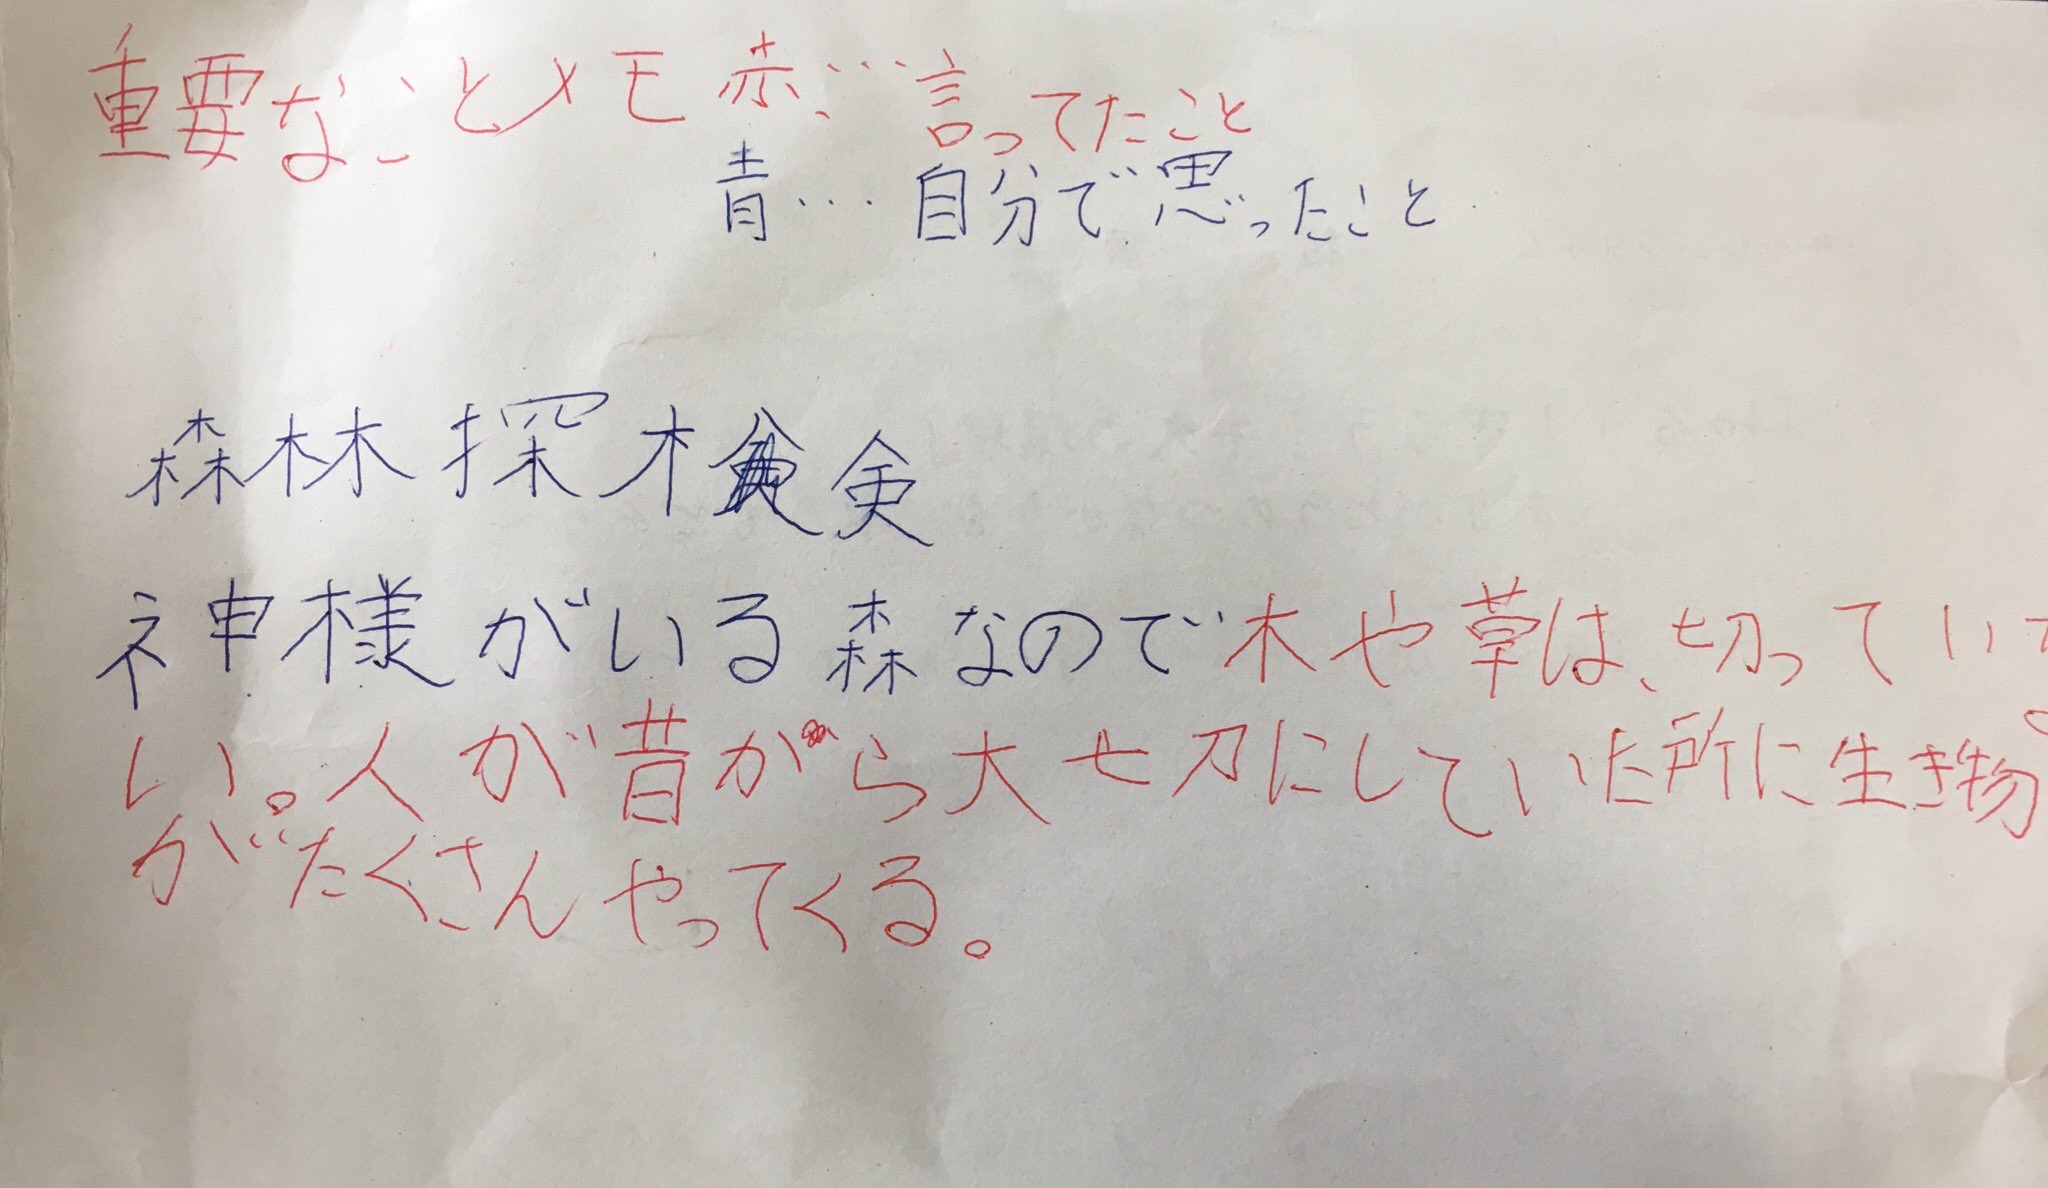 重要なことメモ 赤…言ってたこと
青…自分で思ったこと
森林探検
神様がいる森なので木や草は、切ってい
い。人が昔から大切にしていた所に生き物
がたくさんやってくる。